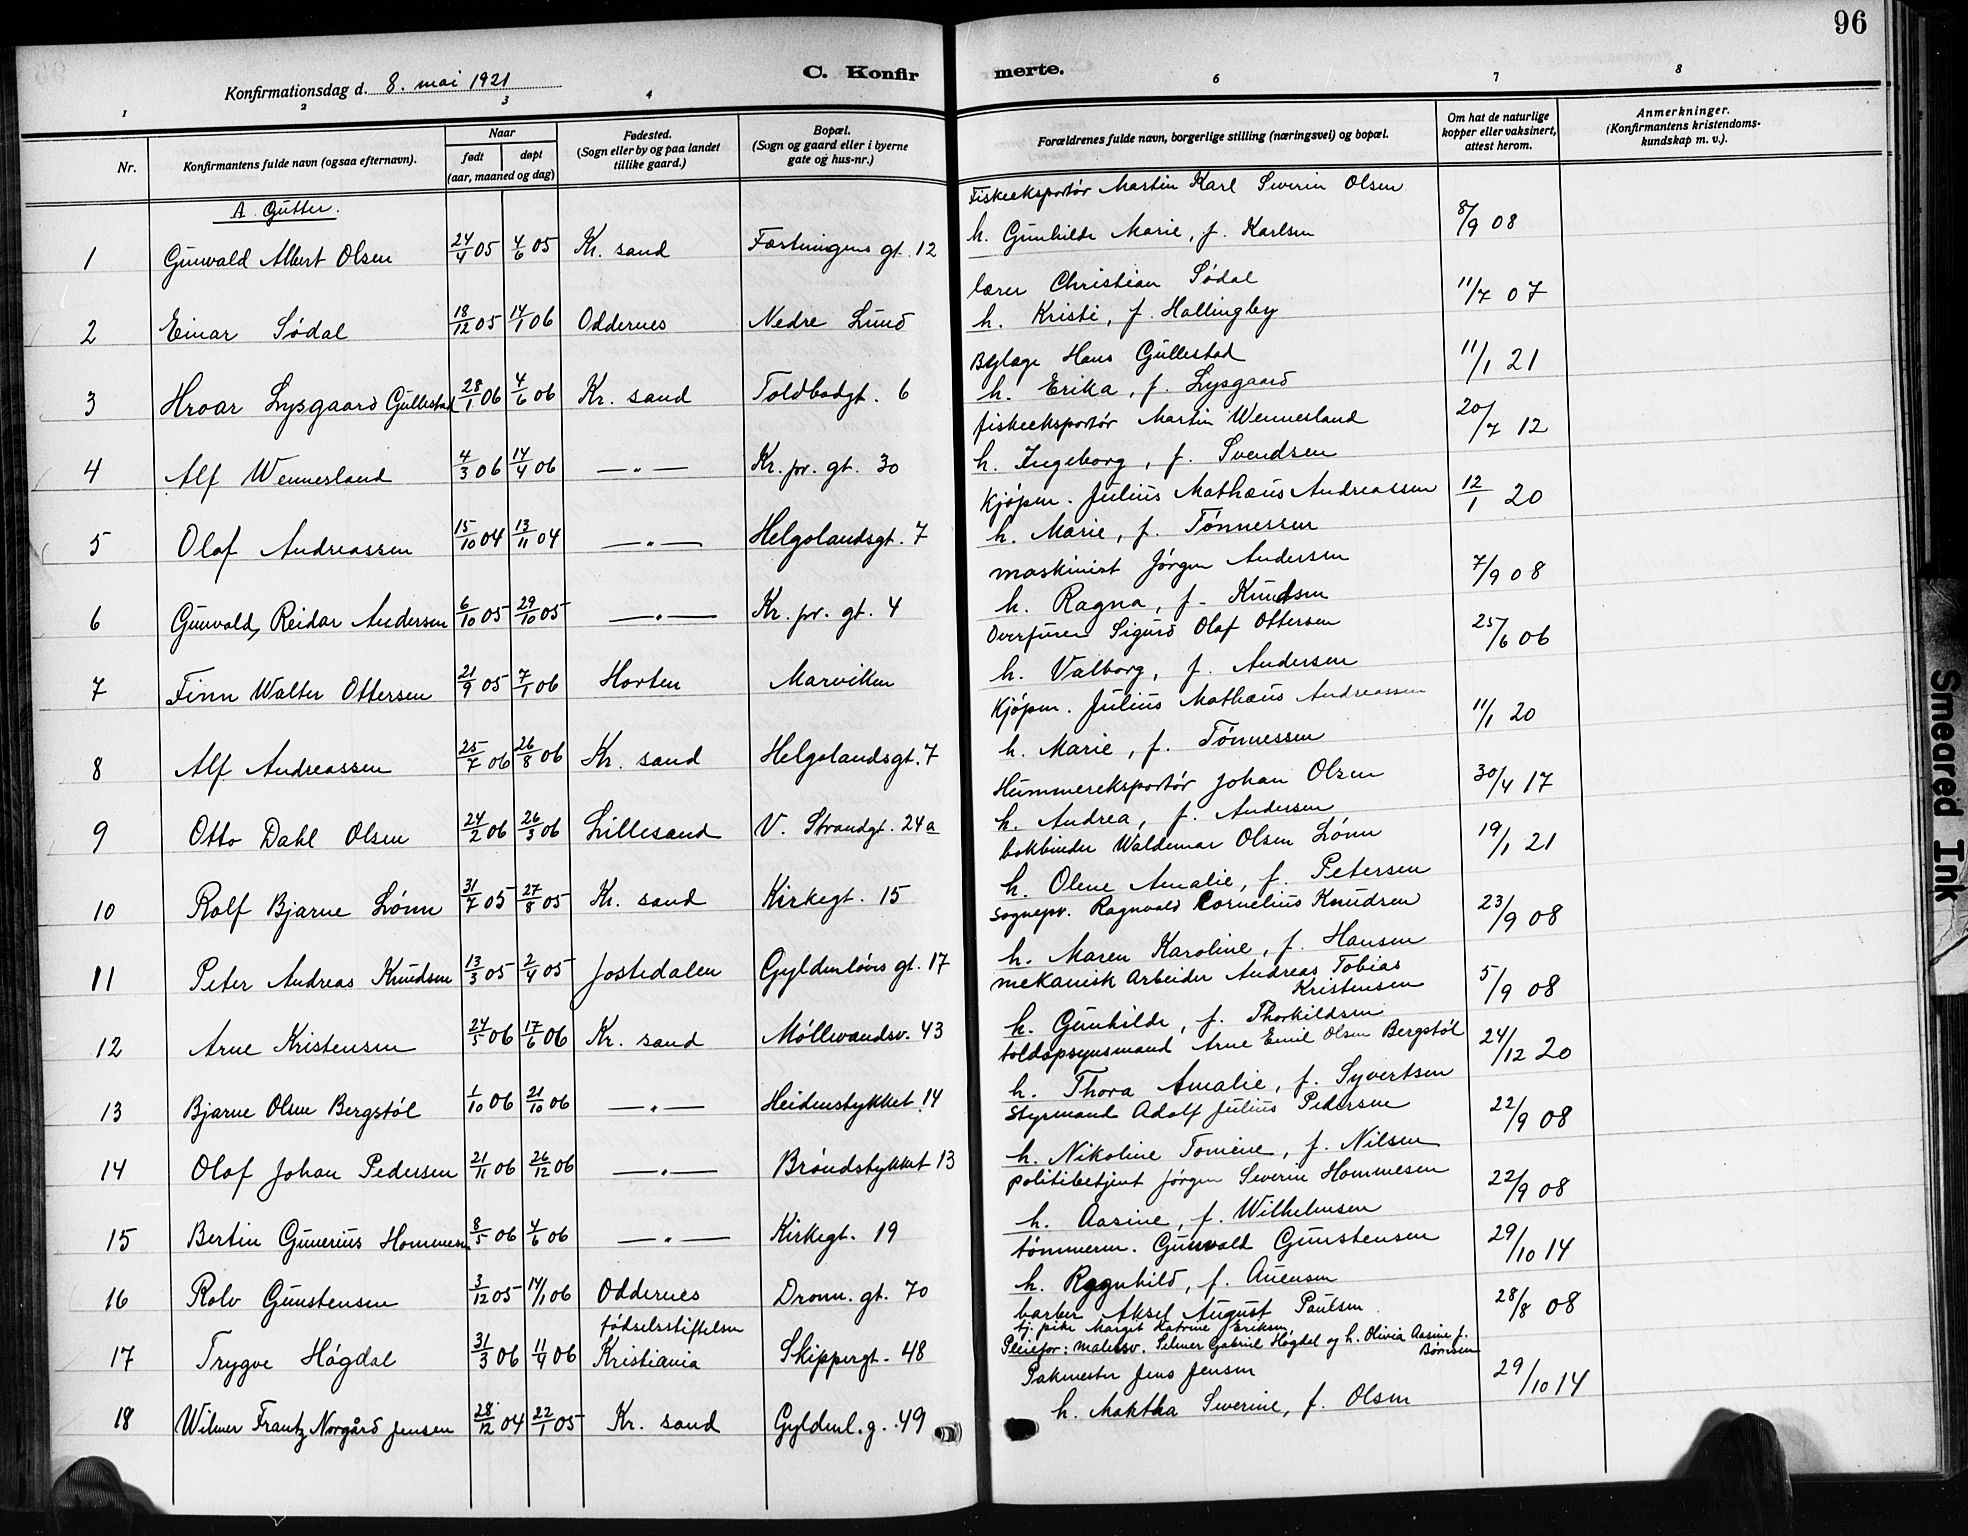 96
C. Konfirmerte.
Konfirmationsdag d. 8. mai 1921
1 2 3 4 6 7 8
Nr.
Konfirmantens fulde navn (ogsaa efternavn).
Naar
født døpt
(aar, maaned og dag)
Fødested.
(Sogn eller by og paa landet
tillike gaard.)
Bopæl.
(Sogn og gaard eller i byerne
gate og hus-nr.)
Forældrenes fulde navn, borgerlige stilling (næringsvei) og bopæl.
Om hat de naturlige
kopper eller vaksinert,
attest herom.
Anmerkninger.
(Konfirmantens kristendoms-
kundskap m. v.).
A. Gutter.
Fiskeeksportør Martin Karl Severin Olsen
1 Gunvald Albert Olsen 24/4 05 4/6 05 Kr. sand Festningens gt. 12 h. Gunhilde Marie, f. Karlsen 8/9 08
lærer Christian Sødal
2 Einar Sødal 18/12 05 14/1 06 Oddernes Nedre Lund h. Kristi, f. Hallingby 11/7 07
Hans Gullestad
3 Hroar Lysgaard Gullestad 28/1 06 4/6 06 Kr. sand Toldbodgt. 6 h. Erika, f. Lysgaard 11/1 21
fiskeeksportør Martin Wennesland
4 Alf Wennesland 4/3 06 14/4 06 —„— Kr. pr. gt. 30 h. Ingeborg, f. Svendsen 20/7 12
Kjøpm. Julius Mathæus Andreassen
5 Olaf Andreassen 15/10 04 13/11 04 —„— Helgolandsgt. 7 h. Marie, f. Tønnessen 12/1 20
maskinist Jørgen Andersen
6 Gunvald Reidar Andersen 6/10 05 29/10 05 —„— Kr. pr. gt. 4 h. Ragna, f. Knudsen 7/9 08
Overfurer Sigurd Olaf Ottersen
7 Finn Walter Ottersen 21/9 05 7/1 06 Horten Marviken h. Valborg, f. Andersen 25/6 06
Kjøpm. Julius Mathæus Andreassen
8 Alf Andreassen 25/7 06 26/8 06 Kr. sand Helgolandsgt. 7 h. Marie, f. Tønnessen 11/1 20
Hummereksportør Johan Olsen
9 Otto Dahl Olsen 24/2 06 26/3 06 Lillesand V. Strandgt. 24a h. Andrea, f. Andersen 30/4 17
bokbinder Waldemar Olsen Lønn
10 Rolf Bjarne Lønn 31/7 05 27/8 05 Kr. sand Kirkegt. 15 h. Olene Amalie, f. Petersen 19/1 21
sognepr. Ragnvald Cornelius Knudsen
11 Peter Andreas Knudsen 13/3 05 2/4 05 Jostedalen Gyldenløves gt. 17 h. Maren Karoline, f. Hansen 23/9 08
mekanisk Arbeider Andreas Tobias
Kristensen
12 Arne Kristensen 24/5 06 17/6 06 Kr. sand Møllevandsv. 43 h. Gunhilde, f. Thorkildsen 5/9 08
toldopsynsmand Arne Emil Olsen Bergstøl
13 Bjarne Olsen Bergstøl 1/10 06 21/10 06 —„— Heidenstykket 14 h. Thora Amalie, f. Syvertsen 24/12 20
Styrmand Adolf Julius Pedersen
14 Olaf Johan Pedersen 21/11 06 26/12 06 —„— Brøndstykket 13 h. Nikoline Tomine, f. Nilsen 22/9 08
politibetjent Jørgen Severin Hommesen
15 Bertin Gunerius Hommesen 8/5 06 4/6 06 —„— Kirkegt. 19 h. Aasine, f. Wilhelmsen 22/9 08
tømmerm. Gunvald Gunstensen
16 Rolv Gunstensen 3/12 05 14/1 06 Oddernes Dronn. gt. 70 h. Ragnhild, f. Auensen 29/10 14
barber Aksel August Paulsen
fødselsstiftelsen tj. pike Margit Katrine Eriksen
17 Trygve Høgdal 31/3 06 11/4 06 Kristiania Skippergt. 48 Pleiefor: malersv. Selmer Gabriel Høgdal og h. Olivia Aasine f.
Børresen 28/8 08
Pakmester Jens Jensen
18 Wilmer Frantz Norgård Jensen 28/12 04 22/1 05 Kr. sand Gyldenl. g. 49 h. Maktha Severine, f. Olsen 29/10 14
Smeared Ink